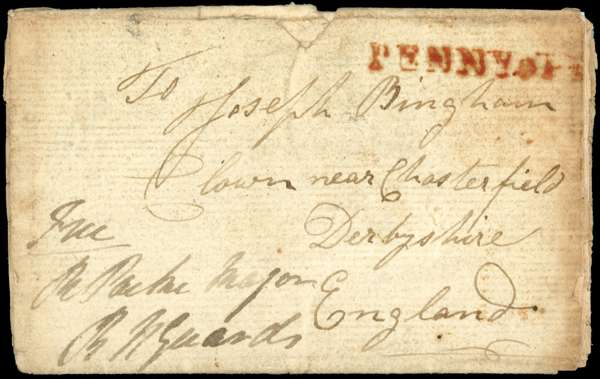 PENNY
To
Joseph Bingham
Clown near Chesterfield
Derbyshire
England
Major
R H Guards